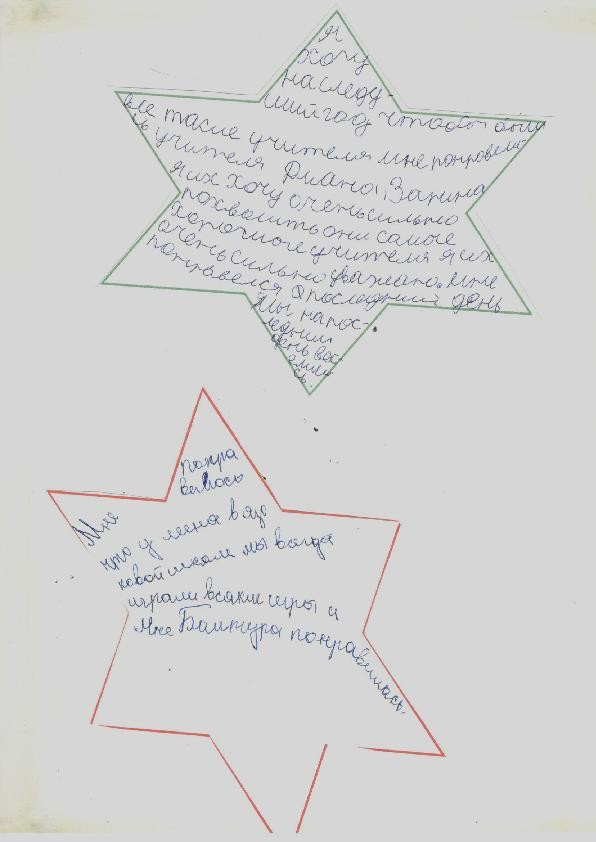 Я
хочу
наследу-
щий год чтобы были
все такие учителя мне понравели-
сь учителя Диана, Зарина
я их хочу очень сильно
похвалить они самые
хорошие учителя я их
очень сильно уважаю. Мне
понравелся последний день
Мы на пос-
ледний
день вес-
елили
сь.
понра
велось
Мне
что у меня в язы
ковой школе мы всегда
играли всякие игры и
Мне понравилась.